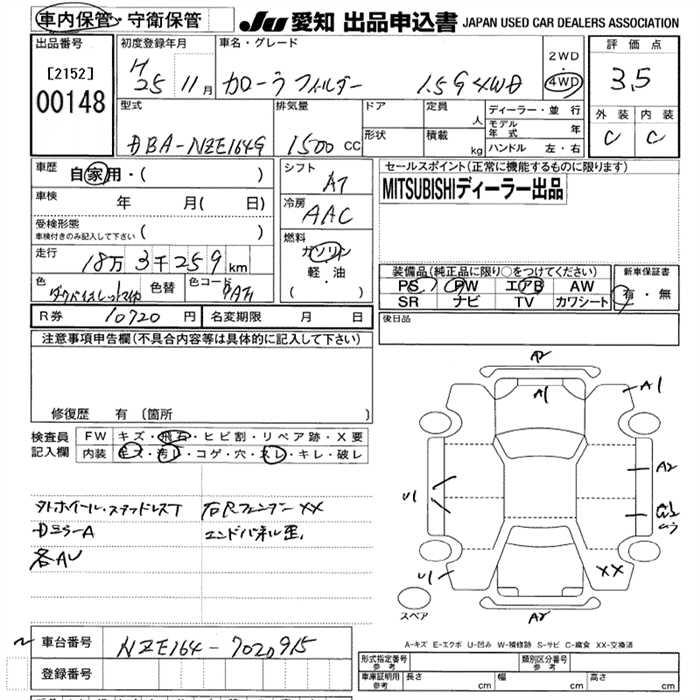 車内保管・守衛保管
JU 愛知 出品申込書 JAPAN USED CAR DEALERS ASSOCIATION
出品番号
[2152]
00148
初度登録年月
H25 11月
車名・グレード
カローラ フィルダー 1.5G 4WD
2WD
・
4WD
評価点
3.5
外装 内装
C C
型式
DBA-NZE164G
排気量
1500 CC
ドア
形状
定員
人
積載
kg
ディーラー・並行
モデル年式 年
ハンドル 左・右
車歴
自家用・( )
車検
年 月( 日)
受検形態
車検付きのみ記入して下さい ( )
走行
18万3千259km
色
色替
色コード
R券 10720円 名変期限 月 日
シフト
AT
冷房
AAC
燃料
ガソリン
軽・油
( )
セールスポイント(正常に機能するものに限ります)
MITSUBISHIディーラー出品
装備品(純正品に限り○をつけてください)
PS PW エアB AW
SR ナビ TV カワシート
新車保証書
有・無
後日品
注意事項申告欄(不具合内容等は具体的に記入して下さい)
修復歴 有(箇所 )
検査員記入欄
FW キズ・飛石・ヒビ割・リペア跡・X要
内装 キズ・汚レ・コゲ・穴・スレ・キレ・破レ
外ホイール・スタッドレスT
右Rフェンダー XX
DミラーA
エンドパネル歪.
各AU
A2
A1
A1
A2
U1
U1
XX
A2
スペア
A-キズ E-エクボ U-凹み W-補修跡 S-サビ C-腐食 XX-交換済
車台番号 NZE164-7020915
登録番号
形式指定番号 参考
類別区分番号 参考
車庫証明用 参考 長さ cm 幅 cm 高さ cm